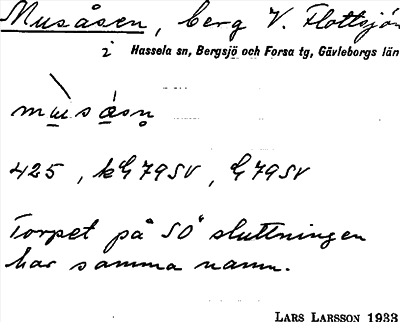 Musåsen, berg V. Flottsjön
i Hassela sn, Bergsjö och Forsa tg, Gävleborgs län
musåsn̥
425, kG79SV, G79SV
Torpet på SO sluttningen
har samma namn.
LARS LARSSON 1933